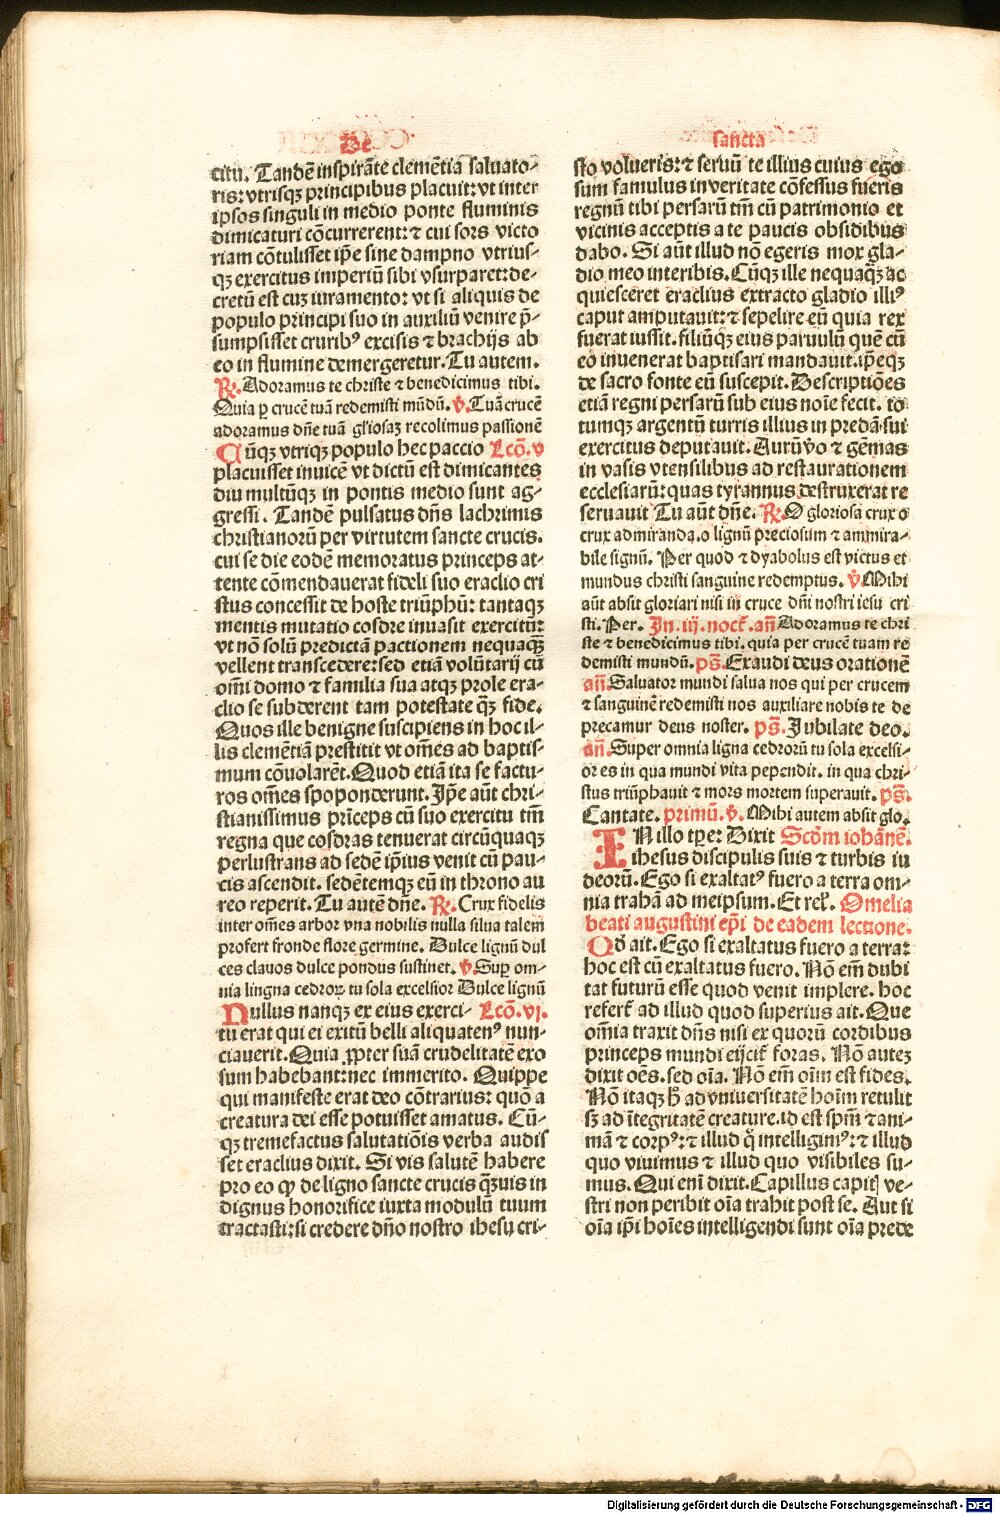 De
sancta
citu. Tandē inspirāte clemētia saluato-
ris: vtrisqꝫ principibus placuit: vt inter
ipsos singuli in medio ponte fluminis
dimicaturi cōcurrerent: ⁊ cui sors victo
riam cōtulisset ip̄e sine dampno vtrius-
qꝫ exercitus imperiū sibi vsurparet: de-
cretū est cuꝫ iuramento: vt si aliquis de
populo principi suo in auxiliū venire p̄-
sumpsisset cruribꝰ excisis ⁊ brachijs ab
eo in flumine demergeretur. Tu autem.
℟. Adoramus te christe ⁊ benedicimus tibi.
Quia ꝑ crucē tuā redemisti mūdū. ℣. Tuā crucē
adoramus dn̄e tuā gl'iosaꝫ recolimus passionē
Cūqꝫ vtriqꝫ populo hec paccio Lcō. v
placuisset inuicē vt dictū est dimicantes
diu multūqꝫ in pontis medio sunt ag-
gressi. Tandē pulsatus dn̄s lachrimis
christianorū per virtutem sancte crucis.
cui se die eodē memoratus princeps at-
tente cōmendauerat fideli suo eraclio cri
stus concessit de hoste triūphū: tantaqꝫ
mentis mutatio cosdre inuasit exercitū:
vt nō solū predictā pactionem nequaqꝫ
vellent transcedere: sed etiā volūtarij cū
om̄i domo ⁊ familia sua atqꝫ prole era-
clio se subderent tam potestate qꝫ fide.
Quos ille benigne suscipiens in hoc il-
lis clemētiā prestitit vt om̄es ad baptis-
mum cōuolarēt. Quod etiā ita se factu-
ros om̄es spoponderunt. Ip̄e aūt chri-
stianissimus prīceps cū suo exercitu tm̄
regna que cosdras tenuerat circūquaqꝫ
perlustrans ad sedē ip̄ius venit cū pau-
cis ascendit. sedētemqꝫ eū in throno au
reo reperit. Tu autē dn̄e. ℟. Crux fidelis
inter om̄es arbor vna nobilis nulla silua talem
profert fronde flore germine. Dulce lignū dul
ces clauos dulce pondus sustinet. ℣. Suꝑ om-
nia lingna cedroꝝ tu sola excelsior Dulce lignū
Nullus nanqꝫ ex eius exerci- Lcō. vj.
tu erat qui ei exitū belli aliquatenꝰ nun-
ciauerit. Quia ꝓpter suā crudelitatē exo
sum habebant: nec immerito. Quippe
qui manifeste erat deo cōtrarius: quō a
creatura dei esse potuisset amatus. Cū-
qꝫ tremefactus salutatiōis verba audis
set eraclius dixit. Si vis salutē habere
pro eo ꝙ de ligno sancte crucis qꝫuis in
dignus honorifice iuxta modulū tuum
tractasti: si credere dn̄o nostro ihesu cri-
sto volueris: ⁊ seruū te illius cuius ego
sum famulus in veritate cōfessus fueris
regnū tibi persarū tm̄ cū patrimonio et
vicinis acceptis a te paucis obsidibus
dabo. Si aūt illud nō egeris mox gla-
dio meo interibis. Cūqꝫ ille nequaqꝫ ac
quiesceret eraclius extracto gladio illiꝰ
caput amputauit: ⁊ sepelire eū quia rex
fuerat iussit. filiūqꝫ eius paruulū quē cū
eo inuenerat baptisari mandauit. ip̄eqꝫ
de sacro fonte eū suscepit. Descriptiōes
etiā regni persarū sub eius noīe fecit. to
tumqꝫ argentū turris illius in predā sui
exercitus deputauit. Aurū v̄o ⁊ gēmas
in vasis vtensilibus ad restaurationem
ecclesiarū: quas tyrannus destruxerat re
seruauit Tu aūt dn̄e. ℟. O gloriosa crux o
crux admiranda. o lignū preciosum ⁊ ammira-
bile signū. Per quod ⁊ dyabolus est victus et
mundus christi sanguine redemptus. ℣. Mihi
aūt absit gloriari nisi in cruce dn̄i nostri iesu cri
sti. Per. In. iij. noct̄. an̄ Adoramus te chri
ste ⁊ benedicimus tibi. quia per crucē tuam re
demisti mundū. ps̄. Exaudi deus orationē
an̄. Saluator mundi salua nos qui per crucem
⁊ sanguinē redemisti nos auxiliare nobis te de
precamur deus noster. ps̄. Jubilate deo.
an̄. Super omnia ligna cedrorū tu sola excelsi-
or es in qua mundi vita pependit. in qua chri-
stus triūphauit ⁊ mors mortem superauit. ps̄.
Cantate. primū. ℣. Mihi autem absit glo.
IN illo tꝑe: Dixit Scd̄m iohānē.
ihesus discipulis suis ⁊ turbis iu
deorū. Ego si exaltatꝰ fuero a terra om-
nia trahā ad meipsum. Et rel'. Omelia
beati augustini ep̄i de eadem lectione.
Qd̄ ait. Ego si exaltatus fuero a terra:
hoc est cū exaltatus fuero. Nō em̄ dubi
tat futurū esse quod venit implere. hoc
refert̄ ad illud quod superius ait. Que
om̄ia traxit dn̄s nisi ex quorū cordibus
princeps mundi eijcit̄ foras. Nō auteꝫ
dixit oēs. sed oīa. Nō em̄ oīm est fides.
Nō itaqꝫ h̄ ad vniuersitatē hoīm retulit
sꝫ ad ītegritatē creature. id est spm̄ ⁊ ani-
mā ⁊ corpꝰ: ⁊ illud q̄ intelligimꝰ: ⁊ illud
quo viuimus ⁊ illud quo visibiles su-
mus. Qui eni dixit. Capillus capitꝭ ve-
stri non peribit oīa trahit post se. Aut si
oīa ip̄i hoīes intelligendi sunt oīa prede
Digitalisierung gefördert durch die Deutsche Forschungsgemeinschaft - DFG